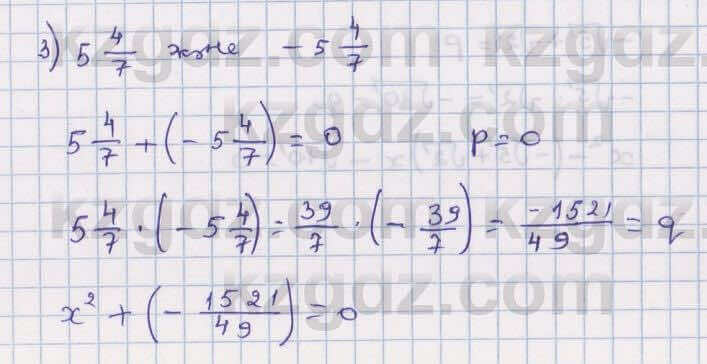 3) 5 4/7 және - 5 4/7
5 4/7 + (- 5 4/7) = 0 p = 0
5 4/7 · (- 5 4/7) = 39/7 · (- 39/7) = -1521/49 = q
x² + (- 1521/49) = 0
kzgdz.com